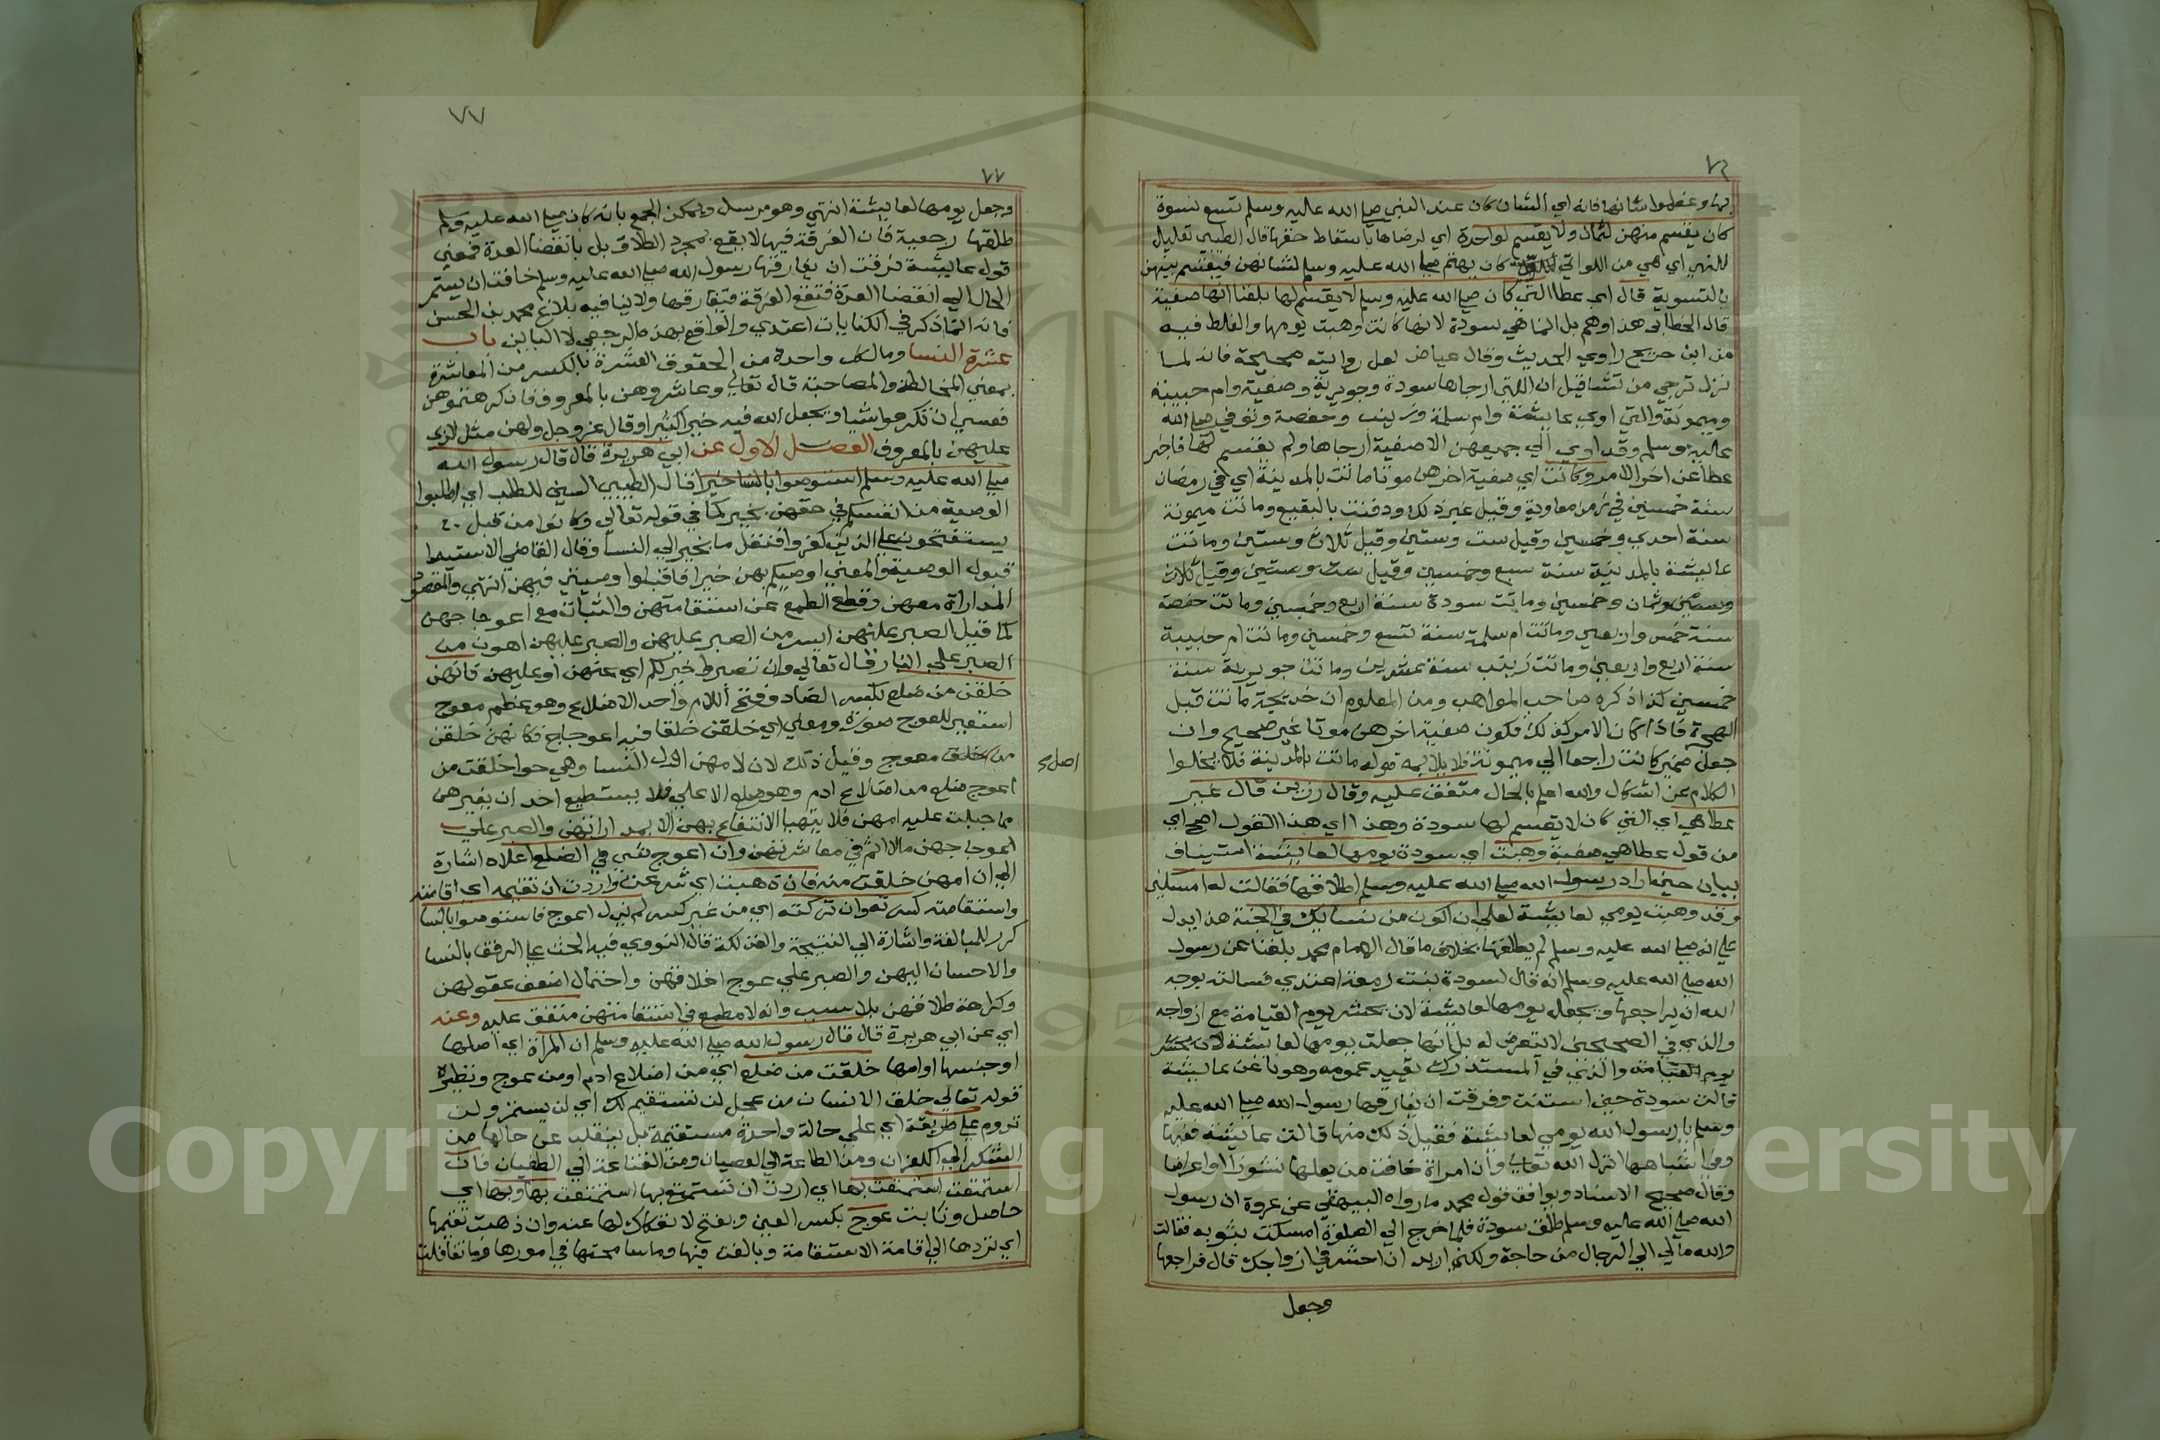 ٧٦
بها وعظموا شانها فانه اي الشان كان عند النبي صلى الله عليه وسلم تسع نسوة
كان يقسم منهن لثمان ولا يقسم لواحدة اي لرضاها باسقاط حقها قال الطيبي تعليل
للنهي اي هي من اللواتي كان يهتم صلى الله عليه وسلم لشانهن فيقسم بينهن
بالتسوية قال اي عطا التي كان صلى الله عليه وسلم لا يقسم لها بلغنا انها صفية
قال الخطابي هذا وهم بل انما هي سودة لانها كانت وهبت يومها والغلط فيه
من ابن جريج راوي الحديث وقال عياض لعل روايته صحيحة فانه لما
نزل ترجي من تشا قيل ان اللتي ارجاها سودة وجويرية وصفية وام حبيبة
وميمونة والتي اوى عايشة وام سلمة وزينب وحفصة وتوفي صلى الله
عليه وسلم وقد اوي الي جميعهن الا صفية ارجاها ولم يقسم لها فاخبر
عطا عن اخر الامر وكانت اي صفية اخرهن موتا ماتت بالمدينة اي في رمضان
سنة خمسين في زمن معاوية وقيل غير ذلك ودفنت بالبقيع وماتت ميمونة
سنة احدي وخمسين وقيل ست وستين وقيل ثلاث وستين وماتت
عايشة بالمدينة سنة سبع وخمسين وقيل
وخمسين وماتت سودة سنة اربع وخمسين وماتت حفصة
سنة خمس واربعين وماتت ام سلمة سنة تسع وخمسين وماتت ام حبيبة
سنة اربع واربعين وماتت زينب سنة عشرين وماتت جويرية سنة
خمسين كذا ذكره صاحب المواهب ومن المعلوم ان خديجة ماتت قبل
الهجرة فاذا كان الامر كذلك فكون صفية اخرهن موتا غير صحيح وان
جعل ضمير كانت راجعا الي ميمونة فلا يلايمه قوله ماتت بالمدينة فلا يخلوا
الكلام عن اشكال والله اعلم بالحال متفق عليه وقال رزين قال غير
عطا هي اي التي كان لا يقسم لها سودة وهذا اي هذا القول اصح اي
من قول عطا هي صفية وهبت اي سودة يومها لعايشة استيناف
بيان حين اراد رسول الله صلى الله عليه وسلم اطلاقها فقالت له امسكني
وقد وهبت يومي لعايشة لعلي ان اكون من نسايك في الجنة هذا يدل
علي انه صلى الله عليه وسلم لم يطلقها بخلاف ما قال الهمام محمد بلغنا عن رسول
الله صلى الله عليه وسلم انه قال لسودة بنت زمعة اعتدي فسالته بوجه
الله ان يراجعها ويجعل يومها لعايشة لان يحشر يوم القيامة مع ازواجه
والذي في الصحيحين لا يتعرض له بل انها جعلت يومها لعايشة
يوم القيامة والذي في المستدرك يفيد عمومه وهو ما عن عايشة
قالت سودة حين استنت وفرقت ان يفارقها رسول الله صلى الله عليه
وسلم يا رسول الله يومي لعايشة فقبل ذلك منها قالت عايشة ففيها
وفي اشباهها انزل الله تعالى وان امراة خافت من بعلها نشوزا او اعراضا
وقال صحيح الاسناد ويوافق قول محمد ما رواه البيهقي عن عروة ان رسول
الله صلى الله عليه وسلم طلق سودة فلما خرج الي الصلوة امسكت بثوبه فقالت
والله مالي الي الرجال من حاجة ولكني اريد ان احشر في ازواجك قال فراجعها
وجعل
٧٧
٧٧
وجعل يومها لعايشة انتهي وهو مرسل ويمكن الجمع بانه كان صلى الله عليه وسلم
طلقها رجعية فان الفرقة فيها لا يقع بمجرد الطلاق بل بانقضا العدة فمعني
قول عايشة فرقت ان يفارقها رسول الله صلى الله عليه وسلم خافت ان يستمر
الحال الي انقضا العدة فتقع الفرقة فيفارقها ولا ينافيه بلاغ محمد بن الحسن
فانه انما ذكر في الكنايات اعتدي والواقع بهذه الرجعي لا الباين باب
عشرة النسا وما لكل واحدة من الحقوق العشرة بالكسر من المعاشرة
بمعني المخالطة والمصاحبة قال تعالي وعاشروهن بالمعروف فان كرهتموهن
فعسي ان تكرهوا شيا ويجعل الله فيه خيرا كثيرا وقال عز وجل ولهن مثل الذي
عليهن بالمعروف الفصل الاول عن ابي هريرة قال قال رسول الله
صلى الله عليه وسلم استوصوا بالنسا خيرا قال الطيبي السين للطلب اي اطلبوا
الوصية من انفسكم في حقهن بخير كما في قوله تعالي وكانوا من قبل
يستفتحون علي الذين كفروا وقال القاضي
قبول الوصية والمعني اوصيكم بهن خيرا فاقبلوا وصيتي فيهن انتهي والمقصود
المداراة معهن وقطع الطمع عن استقامتهن والثبات مع اعوجاجهن
كما قيل الصبر عنهن ايسر من الصبر عليهن والصبر عليهن اهون من
الصبر علي النار قال تعالي وان تصبروا خير لكم اي عنهن او عليهن فانهن
خلقن من ضلع بكسر الضاد وفتح اللام واحد الاضلاع وهو عظم معوج
استعير للعوج صورة ومعني اي خلقن خلقا فيه اعوجاج فكانهن خلقن
من خلق معوج وقيل ذلك لان امهن اول النسا وهي حوا خلقت من
اصل صح
اعوج ضلع من اضلاع ادم وهو ضلعه الاعلي فلا يستطيع احد ان يغيرهن
مما جبلت عليه امهن فلا يتهيا الانتفاع بهن الا بمداراتهن والصبر علي
اعوجاجهن مالا اثم في معاشرتهن وان اعوج شي في الضلع اعلاه اشارة
الي ان امهن خلقت منه فان ذهبت اي شرعت واردت ان تقيمه اي اقامته
واستقامته كسرته وان تركته اي من غير كسر لم يزل اعوج فاستوصوا بالنسا
كرر للمبالغة واشارة الي النتيجة والفذلكة قال النووي فيه الحث علي الرفق بالنسا
والاحسان اليهن والصبر علي عوج اخلاقهن واحتمال ضعف عقولهن
وكراهة طلاقهن بلا سبب وانه لا مطمع في استقامتهن متفق عليه وعنه
اي عن ابي هريرة قال قال رسول الله صلى الله عليه وسلم ان المراة اي اصلها
او جنسها او امها خلقت من ضلع اي من اضلاع ادم او من عوج ونظيره
قوله تعالي خلق الانسان من عجل لن تستقيم لك اي لن يستمر ولن
تدوم علي طريقة اي علي حالة واحدة مستقيمة بل ينقلب عن حالها من
الشكر الي الكفران ومن الطاعة الي العصيان ومن القناعة الي الطغيان فان
استمتعت استمتعت بها اي اردت ان تستمتع بها استمتعت بها وبها اي
حاصل وثابت عوج بكسر العين ويفتح لا تفكاك لها عنه وان ذهبت تقيمها
اي تردها الي اقامة الاستقامة وبالغت فيها وما سامحتها في امورها وما تغافلت
Copyright © King Saud University
1957